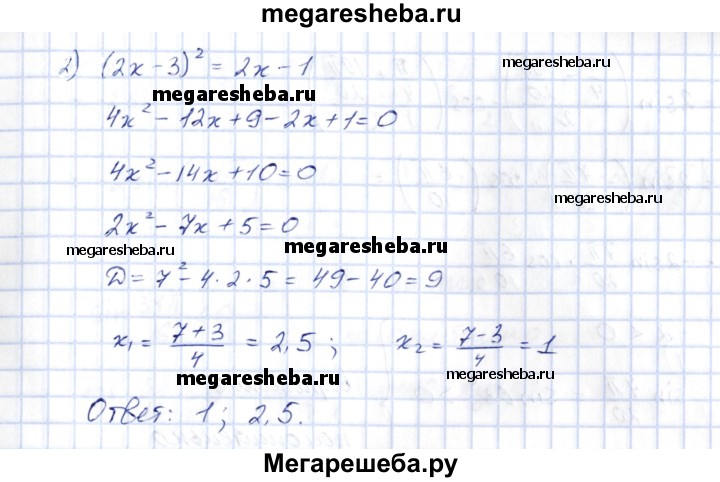 megaresheba.ru
2) (2x-3)² = 2x-1
megaresheba.ru
megaresheba.ru
4x² - 12x + 9 - 2x + 1 = 0
4x² - 14x + 10 = 0
megaresheba.ru
2x² - 7x + 5 = 0
megaresheba.ru
megaresheba.ru
D = 7² - 4·2·5 = 49 - 40 = 9
x₁ = (7+3)/4 = 2,5 ; x₂ = (7-3)/4 = 1
megaresheba.ru
megaresheba.ru
Ответ: 1; 2,5.
Мегарешеба.ру